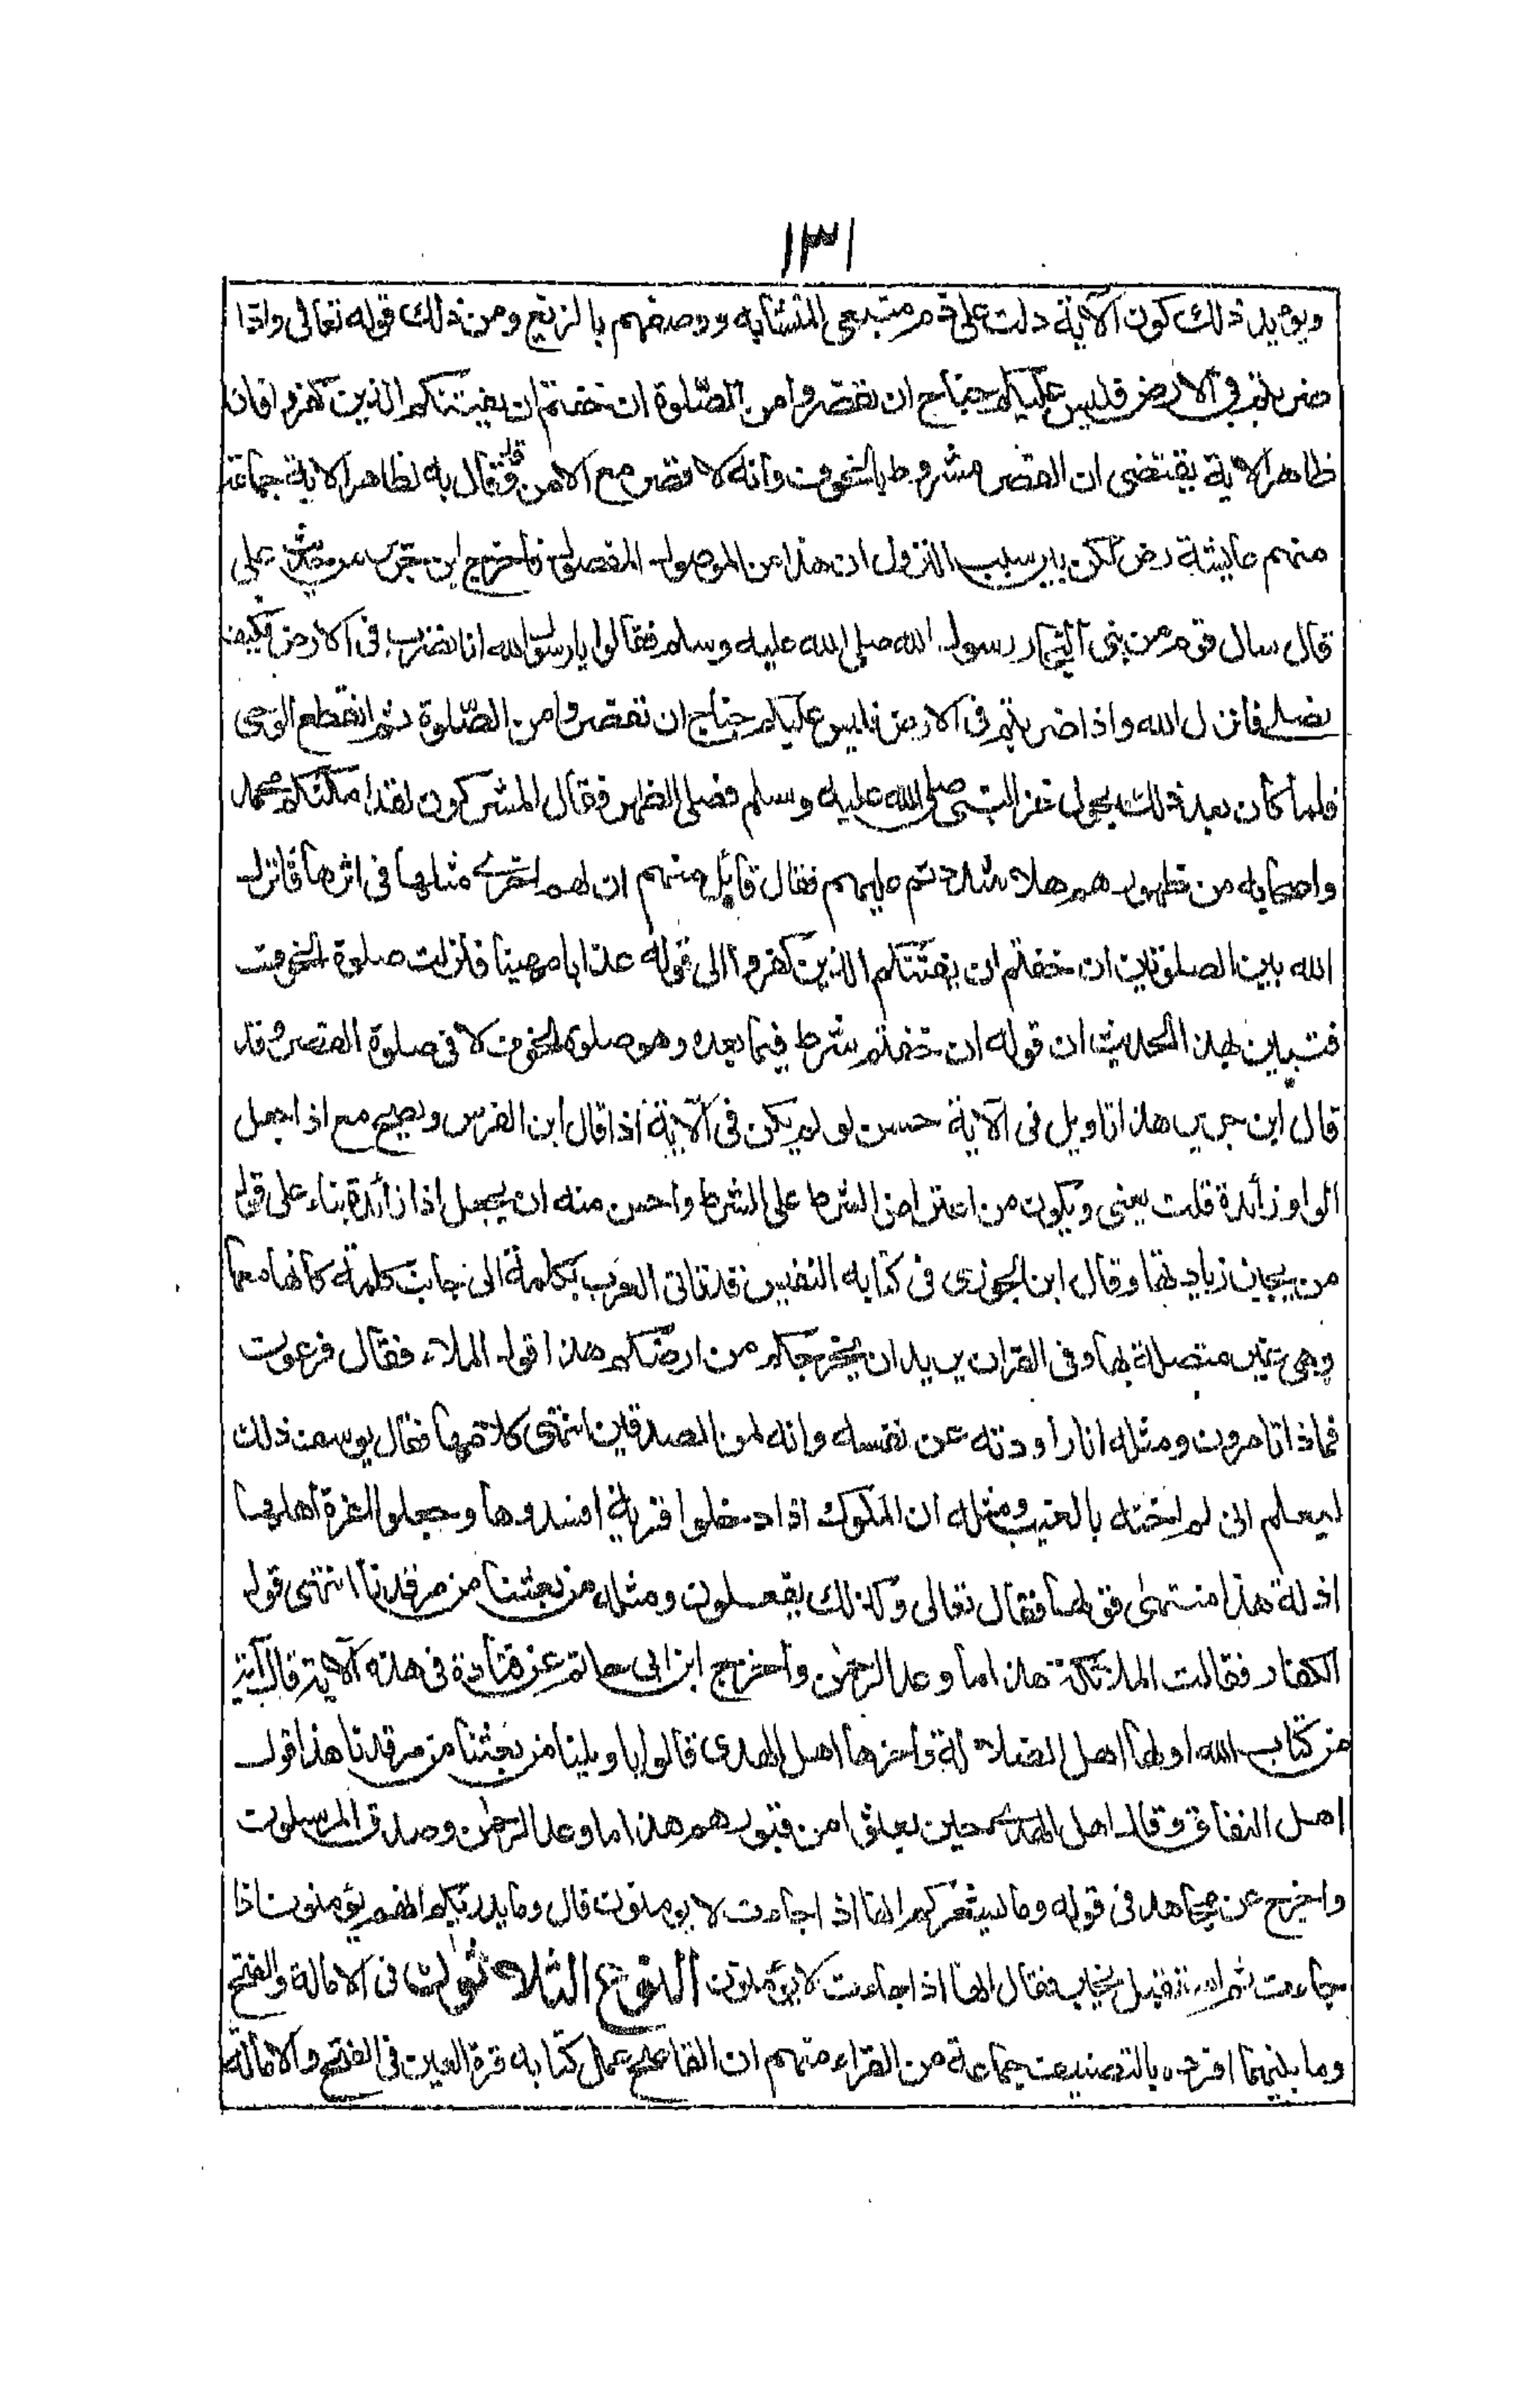 ١٣١
ويؤيد ذلك كون الآية دلت على ذم متبعي المتشابه ووصفهم بالزيغ ومن ذلك قوله تعالى واذا
ضربتم في الارض فليس عليكم جناح ان تقصروا من الصّلوة ان خفتم ان يفتنكم الذين كفروا فان
ظاهر الاية يقتضى ان القصر مشروط بالخوف وانه لا قصر مع الامن وقد قال به لظاهر الاية جماعة
منهم عايشة رض لكن بين سبب النزول ان هذا من الموصول المفصول فاخرج ابن جرير من حديث على
قال سال قوم من بنى النجار رسول الله صلى الله عليه وسلم فقالوا يا رسول الله انا نضرب فى الارض فكيف
نصلى فانزل الله واذا ضربتم فى الارض فليس عليكم جناح ان تقصروا من الصّلوة ثم انقطع الوحى
فلما كان بعد ذلك بحول غزا النبى صلى الله عليه وسلم فصلى الظهر فقال المشركون لقد امكنكم محمد
واصحابه من ظهورهم هلا شددتم عليهم فقال قائل منهم ان لهم اخرى مثلها فى اثرها فانزل
الله بين الصلوتين ان خفتم ان يفتنكم الذين كفروا الى قوله عذابا مهينا فنزلت صلوة الخوف
فتبين بهذا الحديث ان قوله ان خفتم شرط فيما بعده وهو صلوة الخوف لا فى صلوة القصر وقد
قال ابن جرير هذا تاويل فى الآية حسن لو لم يكن فى الآية اذا قال ابن الفرس ويصح مع اذا جعل
الواو زائدة قلت يعنى ويكون من اعتراض الشرط على الشرط واحسن منه ان يجعل اذا زائدة بناء على قول
من يجيز زيادتها وقال ابن الجوزى فى كتابه النفيس قد تاتى العرب بكلمة الى جانب كلمة كانها معها
وهى غير متصلة بها وفى القران يريد ان يخرجكم من ارضكم هذا قول الملاء فقال فرعون
فماذا تامرون ومثله انا راودته عن نفسه وانه لمن الصدقين انتهى كلامها فقال يوسف ذلك
ليعلم انى لم اخنه بالغيب ومثله ان الملوك اذا دخلوا قرية افسدوها وجعلوا اعزة اهلها
اذلة هذا منتهى قولها فقال تعالى وكذلك يفعلون ومثله من بعثنا من مرقدنا انتهى قول
الكفار فقالت الملائكة هذا ما وعد الرحمن واخرج ابن ابى حاتم عن قتادة فى هذه الآية قال آية
من كتاب الله اولها اهل الضلالة وآخرها اهل الهدى قالوا يا ويلنا من بعثنا من مرقدنا هذا قول
اهل النفاق وقال اهل الهدى حين بعثوا من قبورهم هذا ما وعد الرحمن وصدق المرسلون
واخرج عن مجاهد فى قوله وما يشعركم انها اذا جاءت لا يومنون قال وما يدريكم انهم يؤمنون اذا
جاءت ثم استقبل يخبر فقال انها اذا جاءت لا يؤمنون النوع الثلاثون فى الامالة والفتح
وما بينهما افرده بالتصنيف جماعة من القراء منهم ابن القاصح عمل كتابه قرة العين فى الفتح والامالة